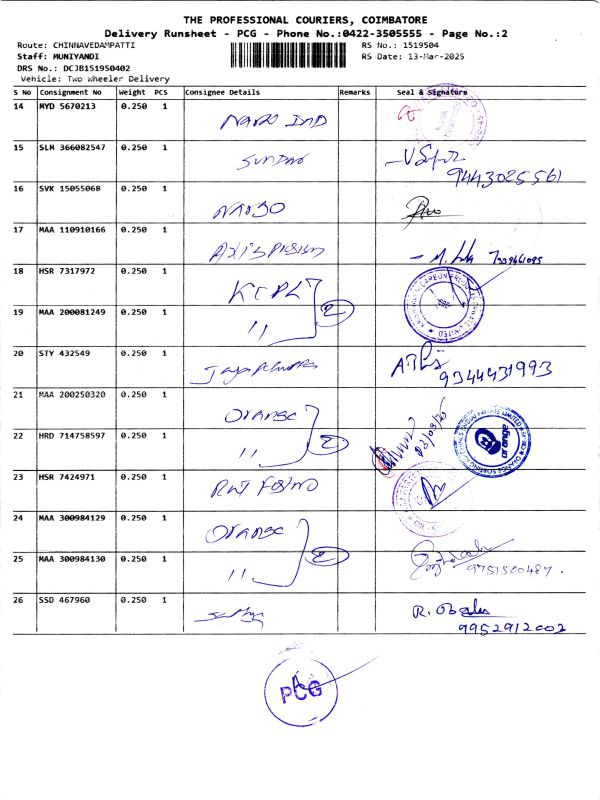 THE PROFESSIONAL COURIERS, COIMBATORE
Delivery Runsheet - PCG - Phone No.:0422-3505555 - Page No.:2
Route: CHINNAVEDAMPATTI RS No.: 1519504
Staff: MUNIYANDI RS Date: 13-Mar-2025
DRS No.: DCJB151950402
Vehicle: Two Wheeler Delivery
S No Consignment No Weight PCS Consignee Details Remarks Seal & Signature
14 MYD 5670213 0.250 1
15 SLM 366082547 0.250 1
9443025561
16 SVK 15055068 0.250 1
17 MAA 110910166 0.250 1
18 HSR 7317972 0.250 1 KCPL
19 MAA 200081249 0.250 1 " 2
20 STY 432549 0.250 1
9344431993
21 MAA 200250320 0.250 1 Orange
22 HRD 714758597 0.250 1 " 2
orange
23 HSR 7424971 0.250 1
24 MAA 300984129 0.250 1 Orange
25 MAA 300984130 0.250 1 " 2
9751500487.
26 SSD 467960 0.250 1
9952912002
PCG